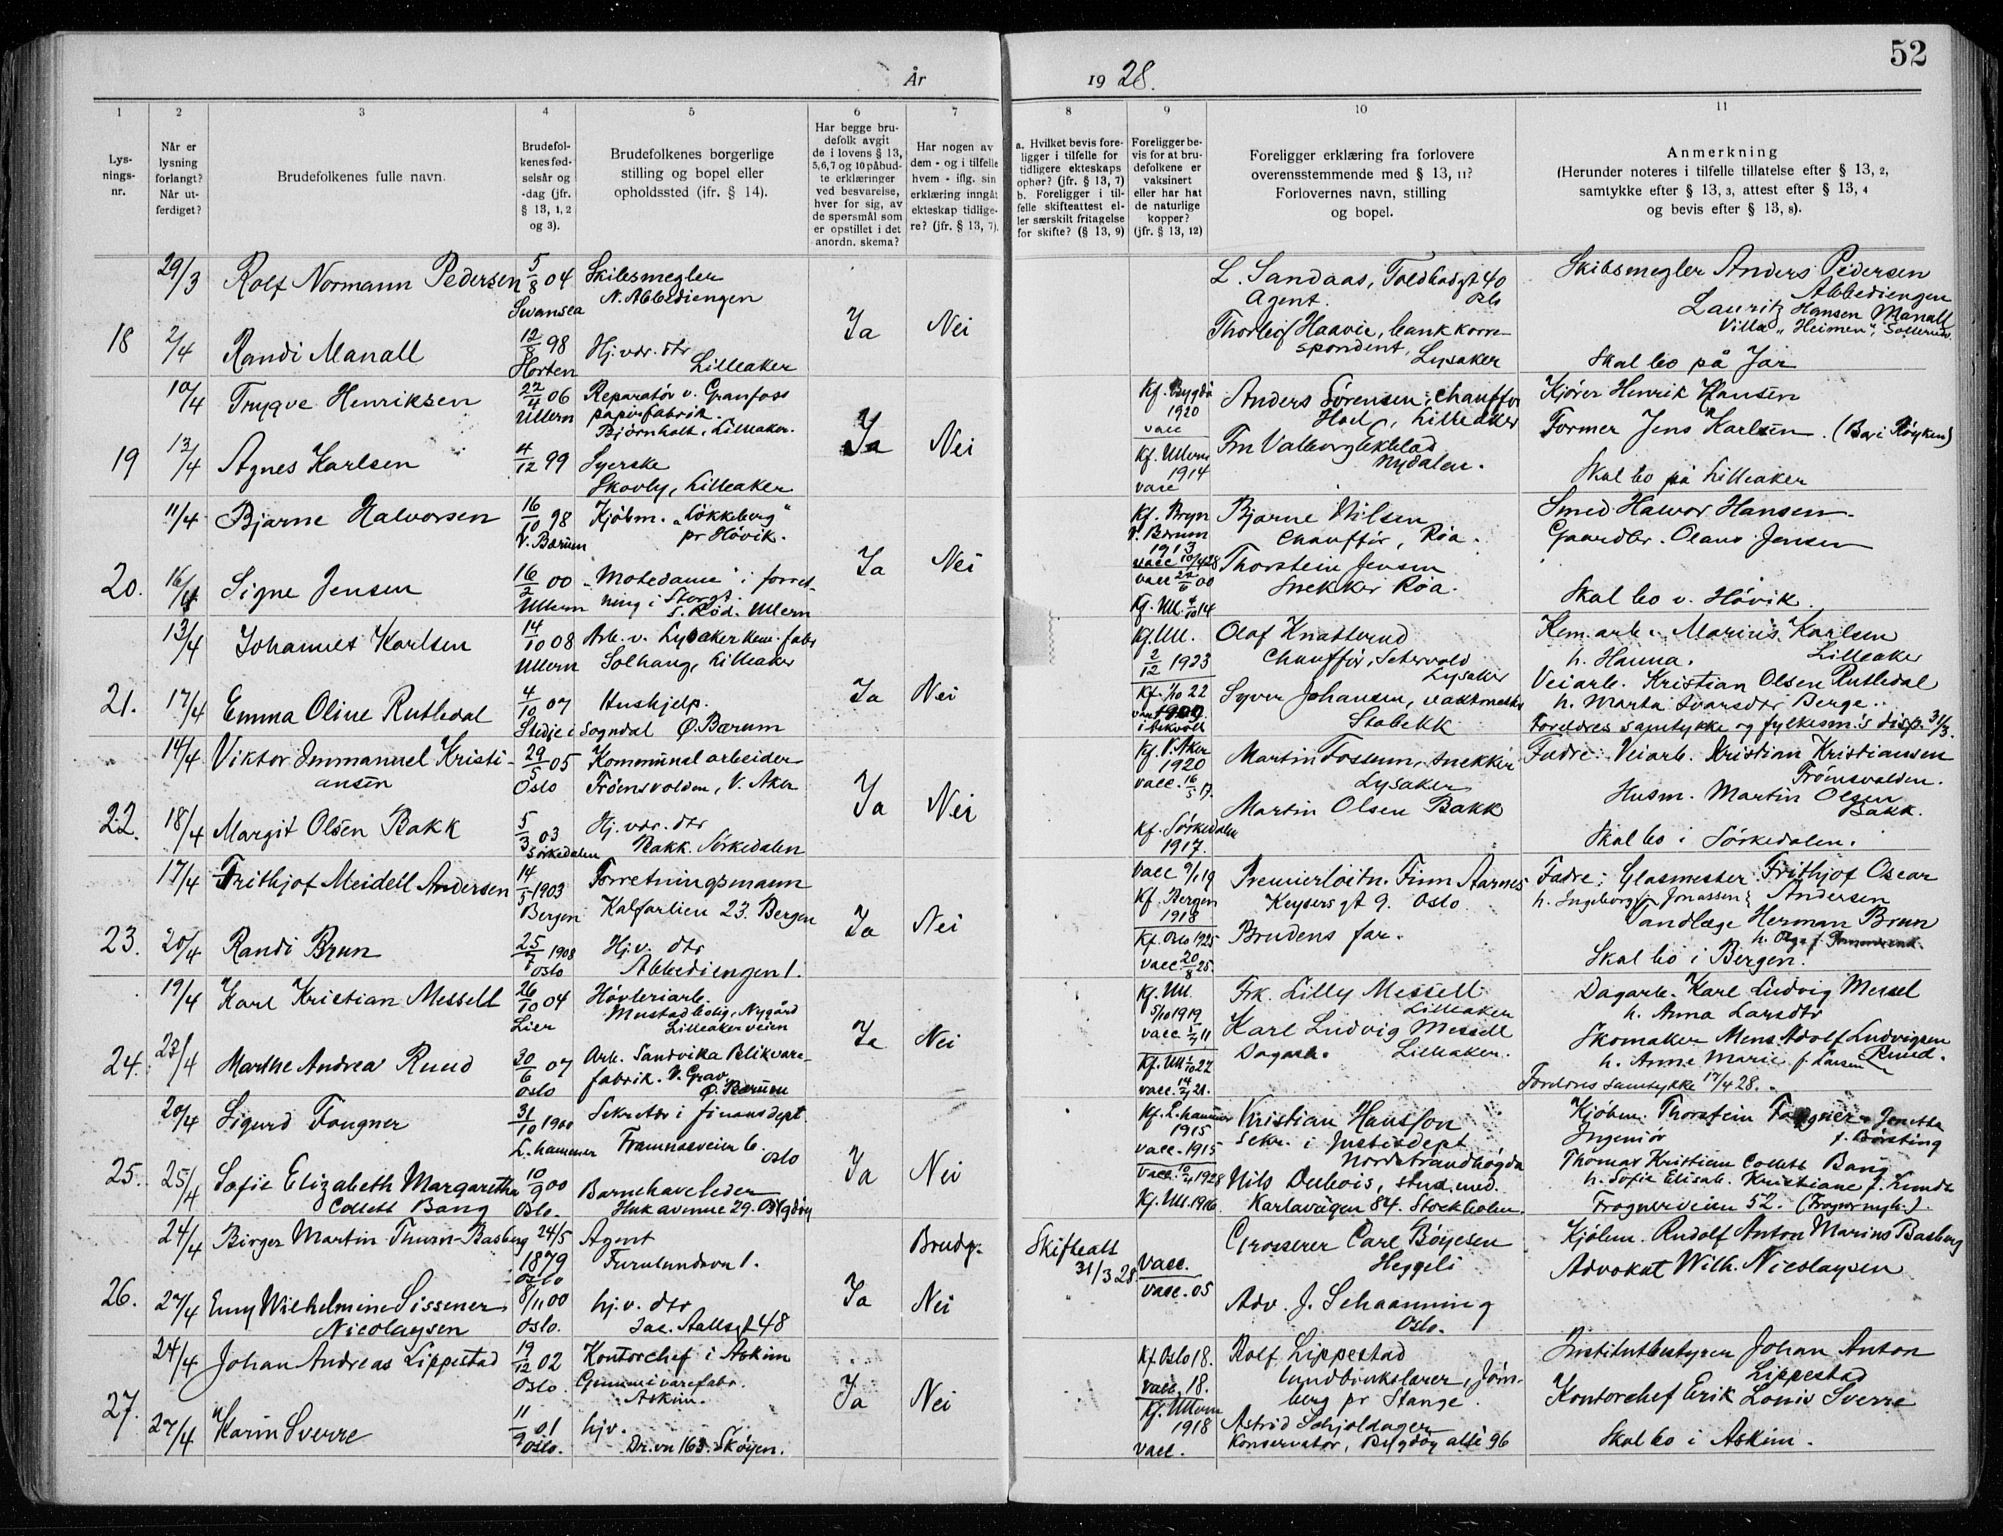 52
År 1928.
1 2 3 4 5 6 7 8 9 10 11
Lysningsnr.
Når er lysning forlangt? Når utferdiget?
Brudefolkenes fulle navn.
Brudefolkenes fødselsår og -dag (jfr. § 13, 1, 2 og 3).
Brudefolkenes borgerlige stilling og bopel eller opholdssted (jfr. § 14).
Har begge brudefolk avgit de i lovens § 13, 5,6,7 og 10 påbudte erklæringer ved besvarelse, hver for sig, av de spørsmål som er opstillet i det anordn. skema?
Har nogen av dem - og i tilfelle hvem - iflg. sin erklæring inngått ekteskap tidligere? (jfr. § 13, 7).
a. Hvilket bevis foreligger i tilfelle for tidligere ekteskaps ophør? (jfr. § 13, 7) b. Foreligger i tilfelle skifteattest eller særskilt fritagelse for skifte? (§ 13, 9)
Foreligger bevis for at brudefolkene er vaksinert eller har hat de naturlige kopper? (jfr. § 13, 12)
Foreligger erklæring fra forlovere overensstemmende med § 13, 11? Forlovernes navn, stilling og bopel.
Anmerkning (Herunder noteres i tilfelle tillatelse efter § 13, 2, samtykke efter § 13, 3, attest efter § 13, 4 og bevis efter § 13, 8).
29/3 Rolf Normann Pedersen 5/8 04 Swansea Skibsmegler N. Abbediengen L. Sandaas, Toldbodgt 40 Oslo Agent. Skibsmegler Anders Pedersen Abbediengen
18 2/4 Randi Manall 12/8 98 Horten Hj.vær. dtr Lilleaker Ja Nei Thorleif Haavie, bankkorrespondent, Lysaker Lauritz Hansen Manall Villa "Heimen", Sollerud. Skal bo på Jar
10/4 Trygve Henriksen 22/4 06 Ullern Reparatør v. Granfoss papirfabrik. Bjørnholt, Lilleaker. Kf. Bygdø 1920 vacc Anders Sørensen, chauffør Hoel, Lilleaker Kjører Henrik Hansen
19 13/4 Agnes Karlsen 4/12 99 Syerske Skovly, Lilleaker Ja Nei Kf. Ullern 1914 vacc Fru Valborg Ekblad Nydalen. Former Jens Karlsen. (Bor i Røyken) Skal bo på Lilleaker
11/4 Bjarne Halvorsen 16/10 98 V. Bærum Kjøbm. "Løkkeberg" pr Høvik. Kf. Bryn V. Bærum 1913 vacc 10/4 28 Bjarne Nilsen Chauffør, Røa. Smed Halvor Hansen.
20. 16/4 Signe Jensen 16/2 00 Ullern "Motedame" i forretning i Storgt. S. Rød. Ullern Ja Nei vacc 22/6 00 Kf. Ull. 4/10 14 Thorstein Jensen Snekker Røa. Gaardbr. Olaus Jensen Skal bo v. Høvik.
13/4 Johannes Karlsen 14/10 08 Ullern Arb. v. Lysaker kem. fabr Solhaug, Lilleaker Kf. Ull. 2/12 1923 Olaf Knatterud Chauffør, Lysaker Kem. arb. Marius Karlsen h. Hanna. Lilleaker
21. 17/4 Emma Oline Rutledal 4/10 07 Stedje i Sogndal Hushjelp. Ø. Bærum Ja Nei Kf. 1/10 22 Syver Johansen, vaktmester Stabekk Veiarb. Kristian Olsen Rutledal h. Marta Ivarsdtr Berge. Foreldres samtykke og fylkesm.s disp. 31/3.
14/4 Viktor Immanuel Kristiansen 29/5 05 Oslo Kommunalarbeider Trønsvolden, V. Aker Kf. V. Aker 1920 vacc. 16/5 17. Martin Fossum, snekker Lysaker Fadre: Veiarb. Kristian Kristiansen Trønsvolden.
22. 18/4 Margit Olsen Bakk 5/3 03 Sørkedalen Hj. vær. dtr Bakk. Sørkedalen Ja Nei Kf. Sørkedalen 1917. Martin Olsen Bakk Husm. Martin Olsen Bakk. Skal bo i Sørkedalen.
17/4 Frithjof Meidell Andersen 14/5 1903 Bergen Forretningsmann Kalfarlien 23. Bergen vacc 9/1 19 Kf. Bergen 1918 Premierløitn. Finn Aarnes Keysers gt 9. Oslo. Fadre: Glasmester Frithjof Oscar Andersen h. Ingeborg f. Jonassen
23. 20/4 Randi Brun 25/7 1908 Oslo Hj.v. dtr Abbediengen 1. Ja Nei Kf. Oslo 1925 vacc. 20/8 25. Brudens far. Tandlæge Herman Brun Skal bo i Bergen.
19/4 Karl Kristian Messelt 26/10 04 Lier Høvleriarb. Mustadbolig, Nygård Lilleakerveien Kf. Ull. 5/10 1919 vacc. 5/7 11 Frk. Lilly Messell Lilleaker Dagarb. Karl Ludvig Messel h. Anna Larsdtr
24. 23/4 Marthe Andrea Ruud 30/6 07 Oslo Arb. Sandvika Blikvarefabrik. V. Grav, Ø. Bærum Ja Nei Kf. Ull 1/10 22 vacc. 14/7 21. Karl Ludvig Messell Dagarb. Lilleaker. Skomaker Mens Adolf Ludvigsen Ruud. h. Anne Marie f. Larsen Foreldres samtykke 17/4 28.
20/4 Sigurd Fougner 31/10 1900 L.hammer Sekretær i finansdept. Framnæsveien 6. Oslo Kf. L.hammer 1915 vacc. 1915 Kristian Hansson Sekr. i Justisdept Nordstrandhøgda Kjøbm. Thorstein Fougner Jenette f. Børsting
25. 25/4 Sofie Elizabeth Margarethe Collett Bang 10/9 00 Oslo. Barnehaveleder Huk avenue 29. Bygdøy Ja Nei vacc. 10/4 1928 Kf. Ull. 1916. Nils Dubois, stud. med. Karlavägen 84. Stockholm. Ingeniør Thomas Kristian Collett Bang h. Sofie Elisab. Kristiane f. Lundh Frognerveien 52. (Frogner mgh.).
24/4 Birger Martin Thurn-Basberg 24/5 1879 Oslo Agent Furulundsvn 1. Brudg. Skifteatt 31/3 28. vacc. Grosserer Carl Bøyesen Heggeli Kjøbm. Rudolf Anton Marius Basberg
26. 27/4 Emy Wilhelmine Sissener Nicolaysen 8/11 00 Oslo. hj.v. dtr Jac. Aallsgt 48 Ja Nei vacc. 05 Adv. J. Schaanning Oslo. Advokat Wilh. Nicolaysen
24/4 Johan Andreas Lippestad 19/12 02 Oslo. Kontorchef i Askim Gummivarefabr. Askim. Kf. Oslo 18. vacc. 18. Rolf Lippestad landbrukslærer, Jønsberg pr Stange. Institutbestyrer Johan Anton Lippestad
27. 27/4 Karin Sverre 11/9 01 Oslo. hj.v. Dr.vn 163. Skøyen. Ja Nei Kf. Ullern 1918 vacc. Astrid Schjoldager Konservator, Bygdøy allé 96 Kontorchef Erik Louis Sverre Skal bo i Askim.